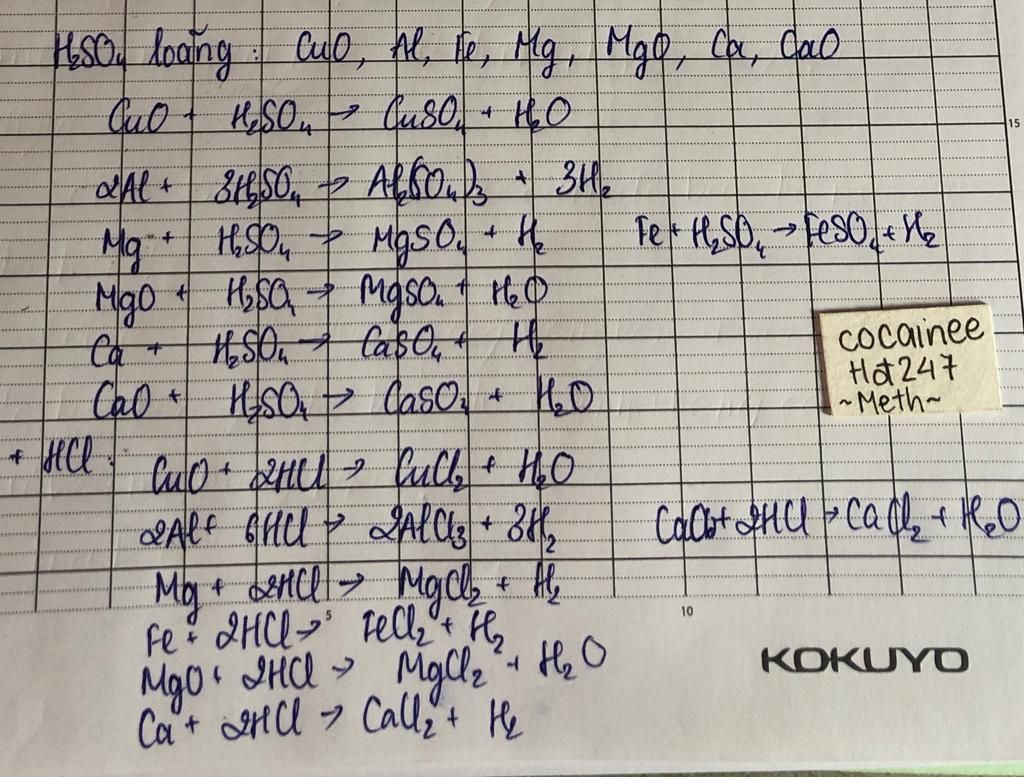 H₂SO₄ loãng : CuO, Al, Fe, Mg, MgO, Ca, CaO
CuO + H₂SO₄ → CuSO₄ + H₂O
2Al + 3H₂SO₄ → Al₂(SO₄)₃ + 3H₂
Mg + H₂SO₄ → MgSO₄ + H₂
Fe + H₂SO₄ → FeSO₄ + H₂
MgO + H₂SO₄ → MgSO₄ + H₂O
Ca + H₂SO₄ → CaSO₄ + H₂
CaO + H₂SO₄ → CaSO₄ + H₂O
cocainee
Hót247
~Meth~
+ HCl :
CuO + 2HCl → CuCl₂ + H₂O
2Al + 6HCl → 2AlCl₃ + 3H₂
+ 2HCl → CaCl₂ + H₂O
Mg + 2HCl → MgCl₂ + H₂
Fe + 2HCl → FeCl₂ + H₂
MgO + 2HCl → MgCl₂ + H₂O
Ca + 2HCl → CaCl₂ + H₂
15
5
10
KOKUYO